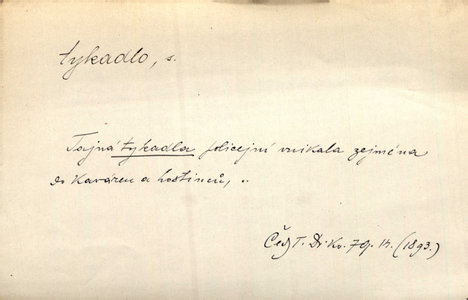 tykadlo, s.
Tajná tykadla policejní vnikala zejména
do kaváren a hostinců, ..
Če T. Di Kv. 79. 14. (1893.)